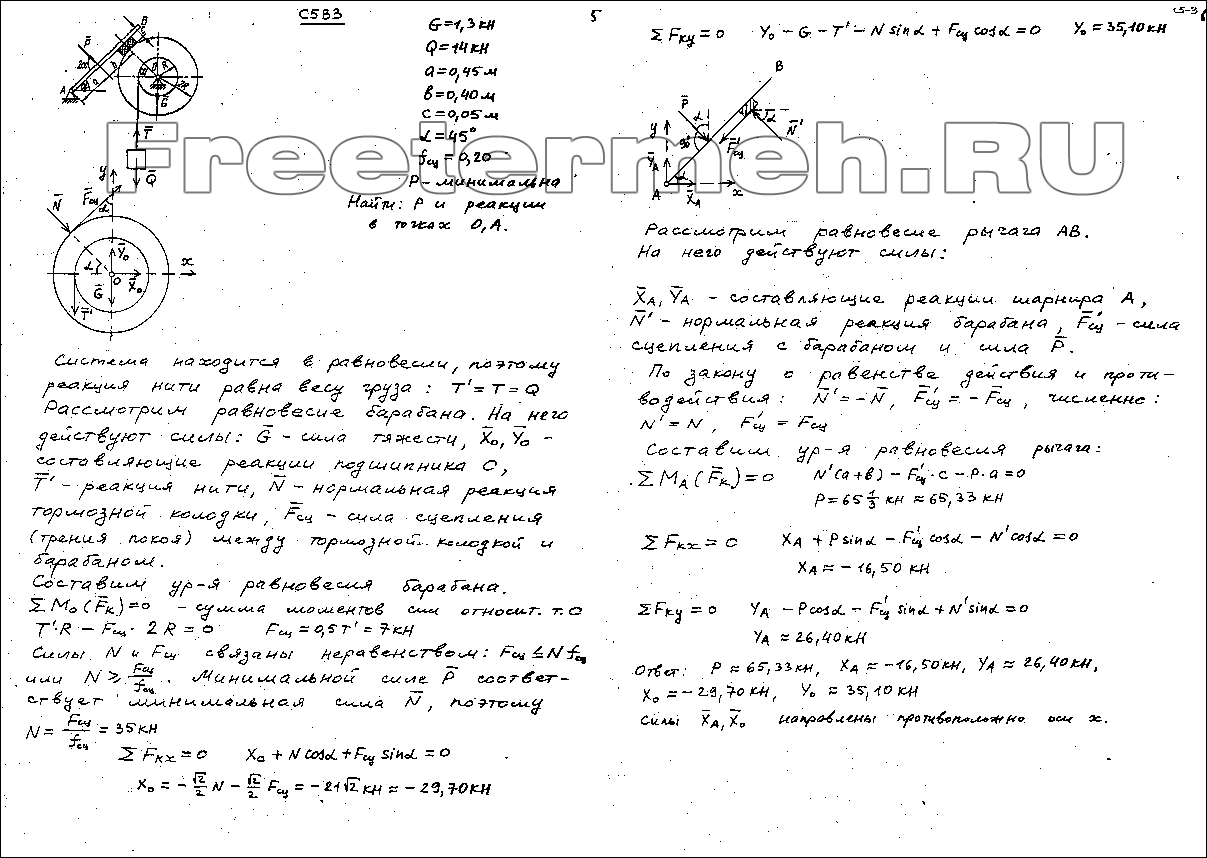 С5В3
5
С5-3
G=1,3 кН
Q=14 кН
a=0,45 м
b=0,40 м
c=0,05 м
α=45°
fсц=0,20
P – минимальна
Найти: P и реакции
в точках O, A.
Freetermeh.RU
Система находится в равновесии, поэтому
реакция нити равна весу груза: T'=T=Q
Рассмотрим равновесие барабана. На него
действуют силы: G̅ – сила тяжести, X̅o, Y̅o –
составляющие реакции подшипника O,
T̅' – реакция нити, N̅ – нормальная реакция
тормозной колодки, F̅сц – сила сцепления
(трения покоя) между тормозной колодкой и
барабаном.
Составим ур-я равновесия барабана.
ΣMo(F̅к)=0 – сумма моментов сил относит. т. O
T'·R – Fсц·2R=0 Fсц=0,5T'=7кН
Силы N и Fсц связаны неравенством: Fсц≤N fсц
или N≥Fсц/fсц. Минимальной силе P̅ соответ-
ствует минимальная сила N̅, поэтому
N=Fсц/fсц=35кН
ΣFкx=0 Xo+Ncosα+Fсц sinα=0
Xo=–√2/2 N–√2/2 Fсц=–21√2 кН≈–29,70кН
ΣFкy=0 Yo–G–T'–N sinα+Fсц cosα=0 Yo=35,10 кН
Рассмотрим равновесие рычага AB.
На него действуют силы:
X̅A, Y̅A – составляющие реакции шарнира A,
N̅' – нормальная реакция барабана, F̅'сц – сила
сцепления с барабаном и сила P̅.
По закону о равенстве действия и проти-
водействия: N̅'=–N̅, F̅'сц=–F̅сц, численно:
N'=N, F'сц=Fсц
Составим ур-я равновесия рычага:
ΣMA(F̅к)=0 N'(a+b)–F'сц·c–P·a=0
P=65 1/3 кН≈65,33 кН
ΣFкx=0 XA+Psinα–F'сц cosα–N'cosα=0
XA≈–16,50 кН
ΣFкy=0 YA–Pcosα–F'сц sinα+N'sinα=0
YA≈26,40кН
Ответ: P≈65,33кН, XA≈–16,50кН, YA≈26,40кН,
Xo≈–29,70кН, Yo≈35,10кН
Силы X̅A, X̅o направлены противоположно оси x.